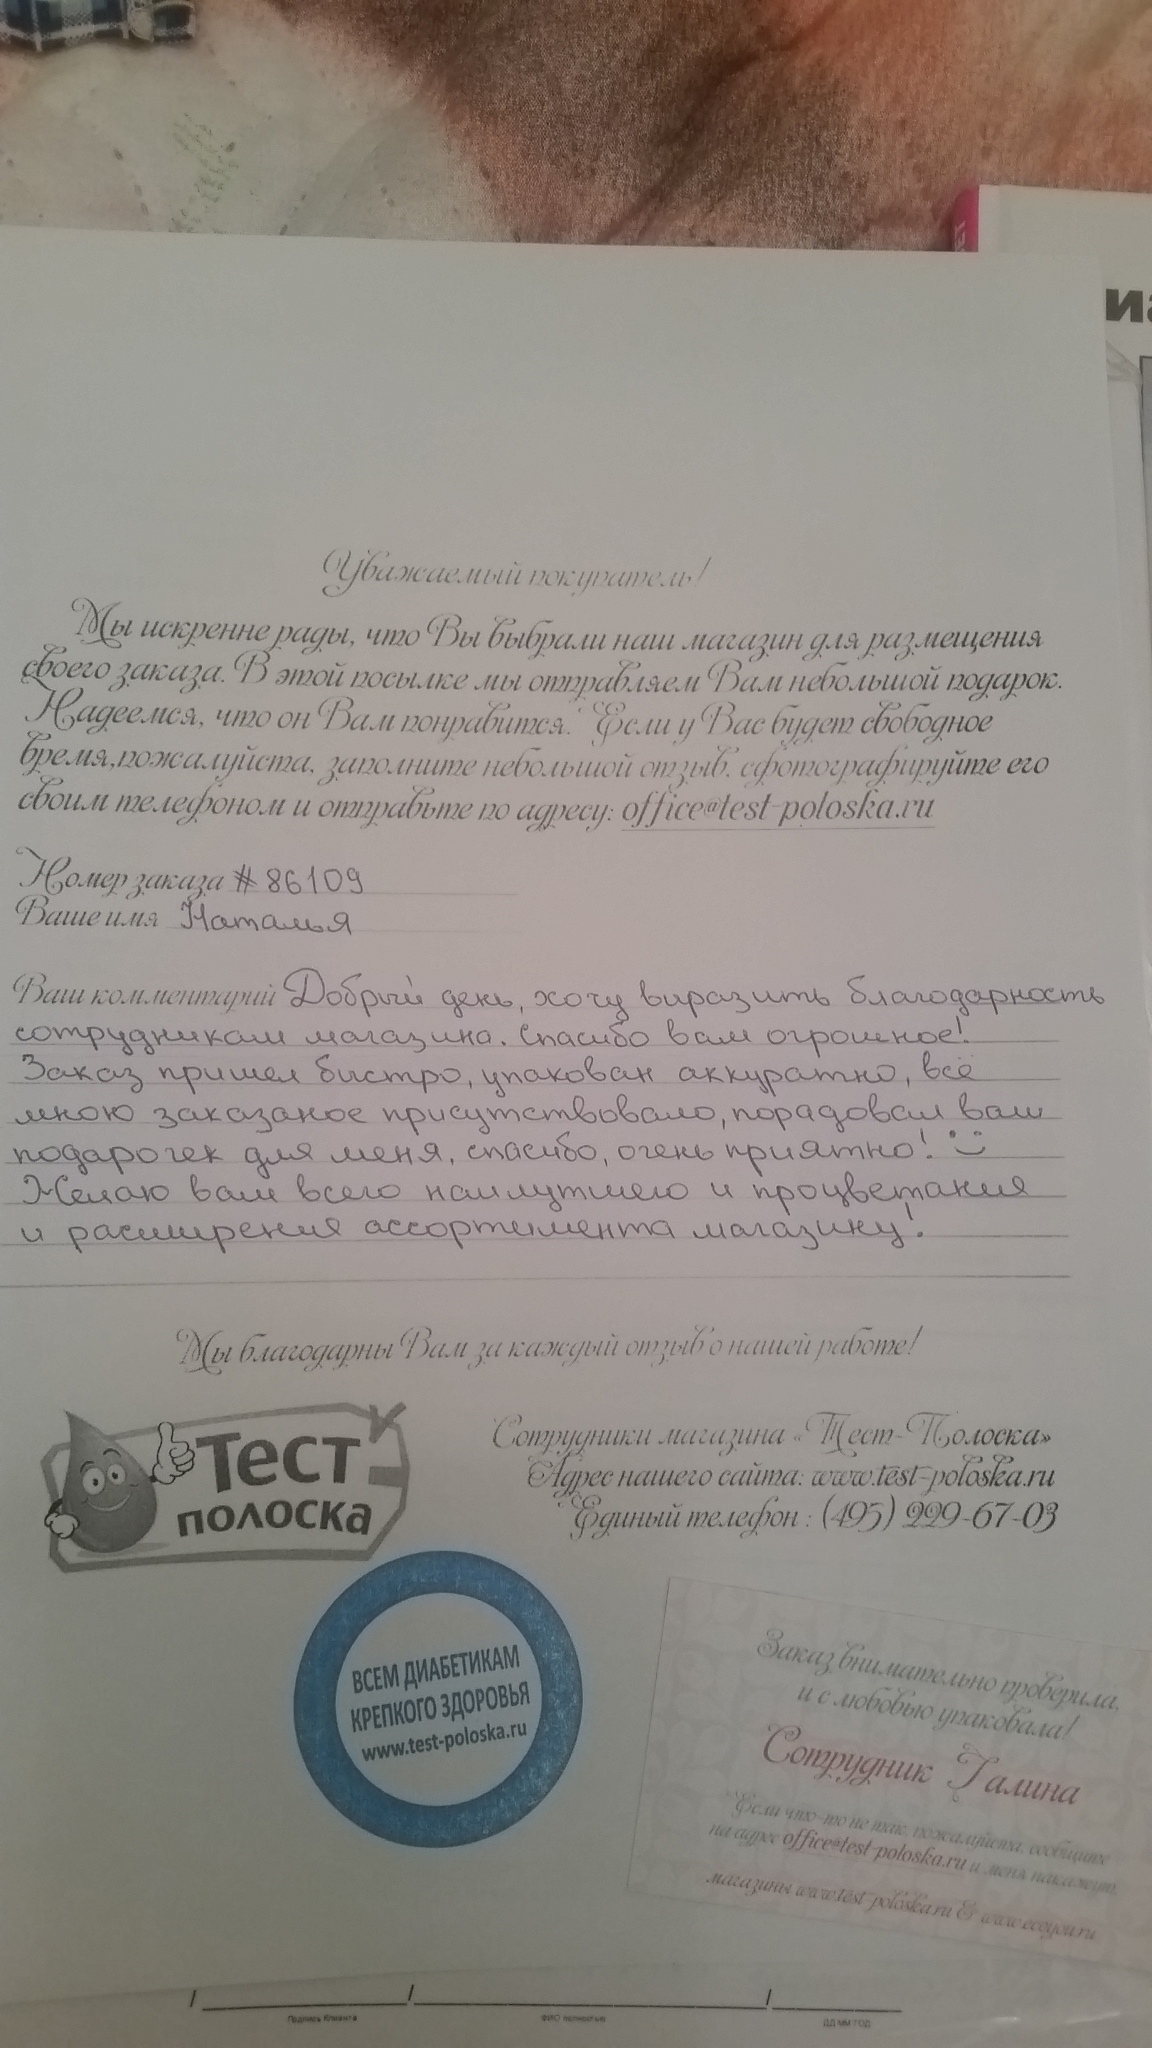 иа
Уважаемый покупатель!
Мы искренне рады, что Вы выбрали наш магазин для размещения
своего заказа. В этой посылке мы отправляем Вам небольшой подарок.
Надеемся, что он Вам понравится. Если у Вас будет свободное
время,пожалуйста, заполните небольшой отзыв, сфотографируйте его
своим телефоном и отправьте по адресу: office@test-poloska.ru
Номер заказа # 86109
Ваше имя Наталья
Ваш комментарий Добрый день, хочу выразить благодарность
сотрудникам магазина. Спасибо вам огромное!
Заказ пришел быстро, упакован аккуратно, всё
мною заказаное присутствовало, порадовал ваш
подарочек для меня, спасибо, очень приятно!
Желаю вам всего наилутшего и процветания
и расширения ассортимента магазину!
Мы благодарны Вам за каждый отзыв о нашей работе!
Тест
полоска
Сотрудники магазина «Тест-Полоска»
Адрес нашего сайта: www.test-poloska.ru
Единый телефон : (495) 229-67-03
ВСЕМ ДИАБЕТИКАМ
КРЕПКОГО ЗДОРОВЬЯ
www.test-poloska.ru
Заказ внимательно проверила,
и с любовью упаковала!
Сотрудник Галина
Если что-то не так, пожалуйста, сообщите
на адрес office@test-poloska.ru и меня накажут.
магазины www.test-poloska.ru & www.ecoyou.ru
Подпись Клиента
ФИО полностью
ДД ММ ГОД